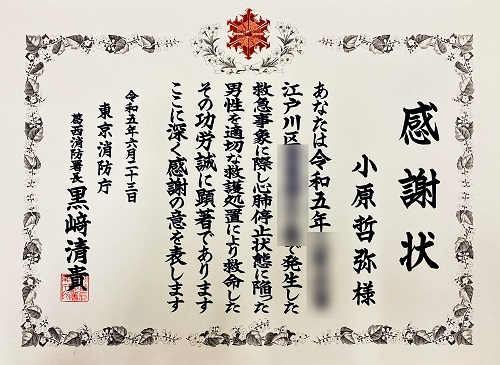 感謝状
小原哲弥様
あなたは令和五年
江戸川区 で発生した
救急事象に際し心肺停止状態に陥った
男性を適切な救護処置により救命した
その功労誠に顕著であります
ここに深く感謝の意を表します
令和五年六月二十三日
東京消防庁
葛西消防署長 黒﨑清貴